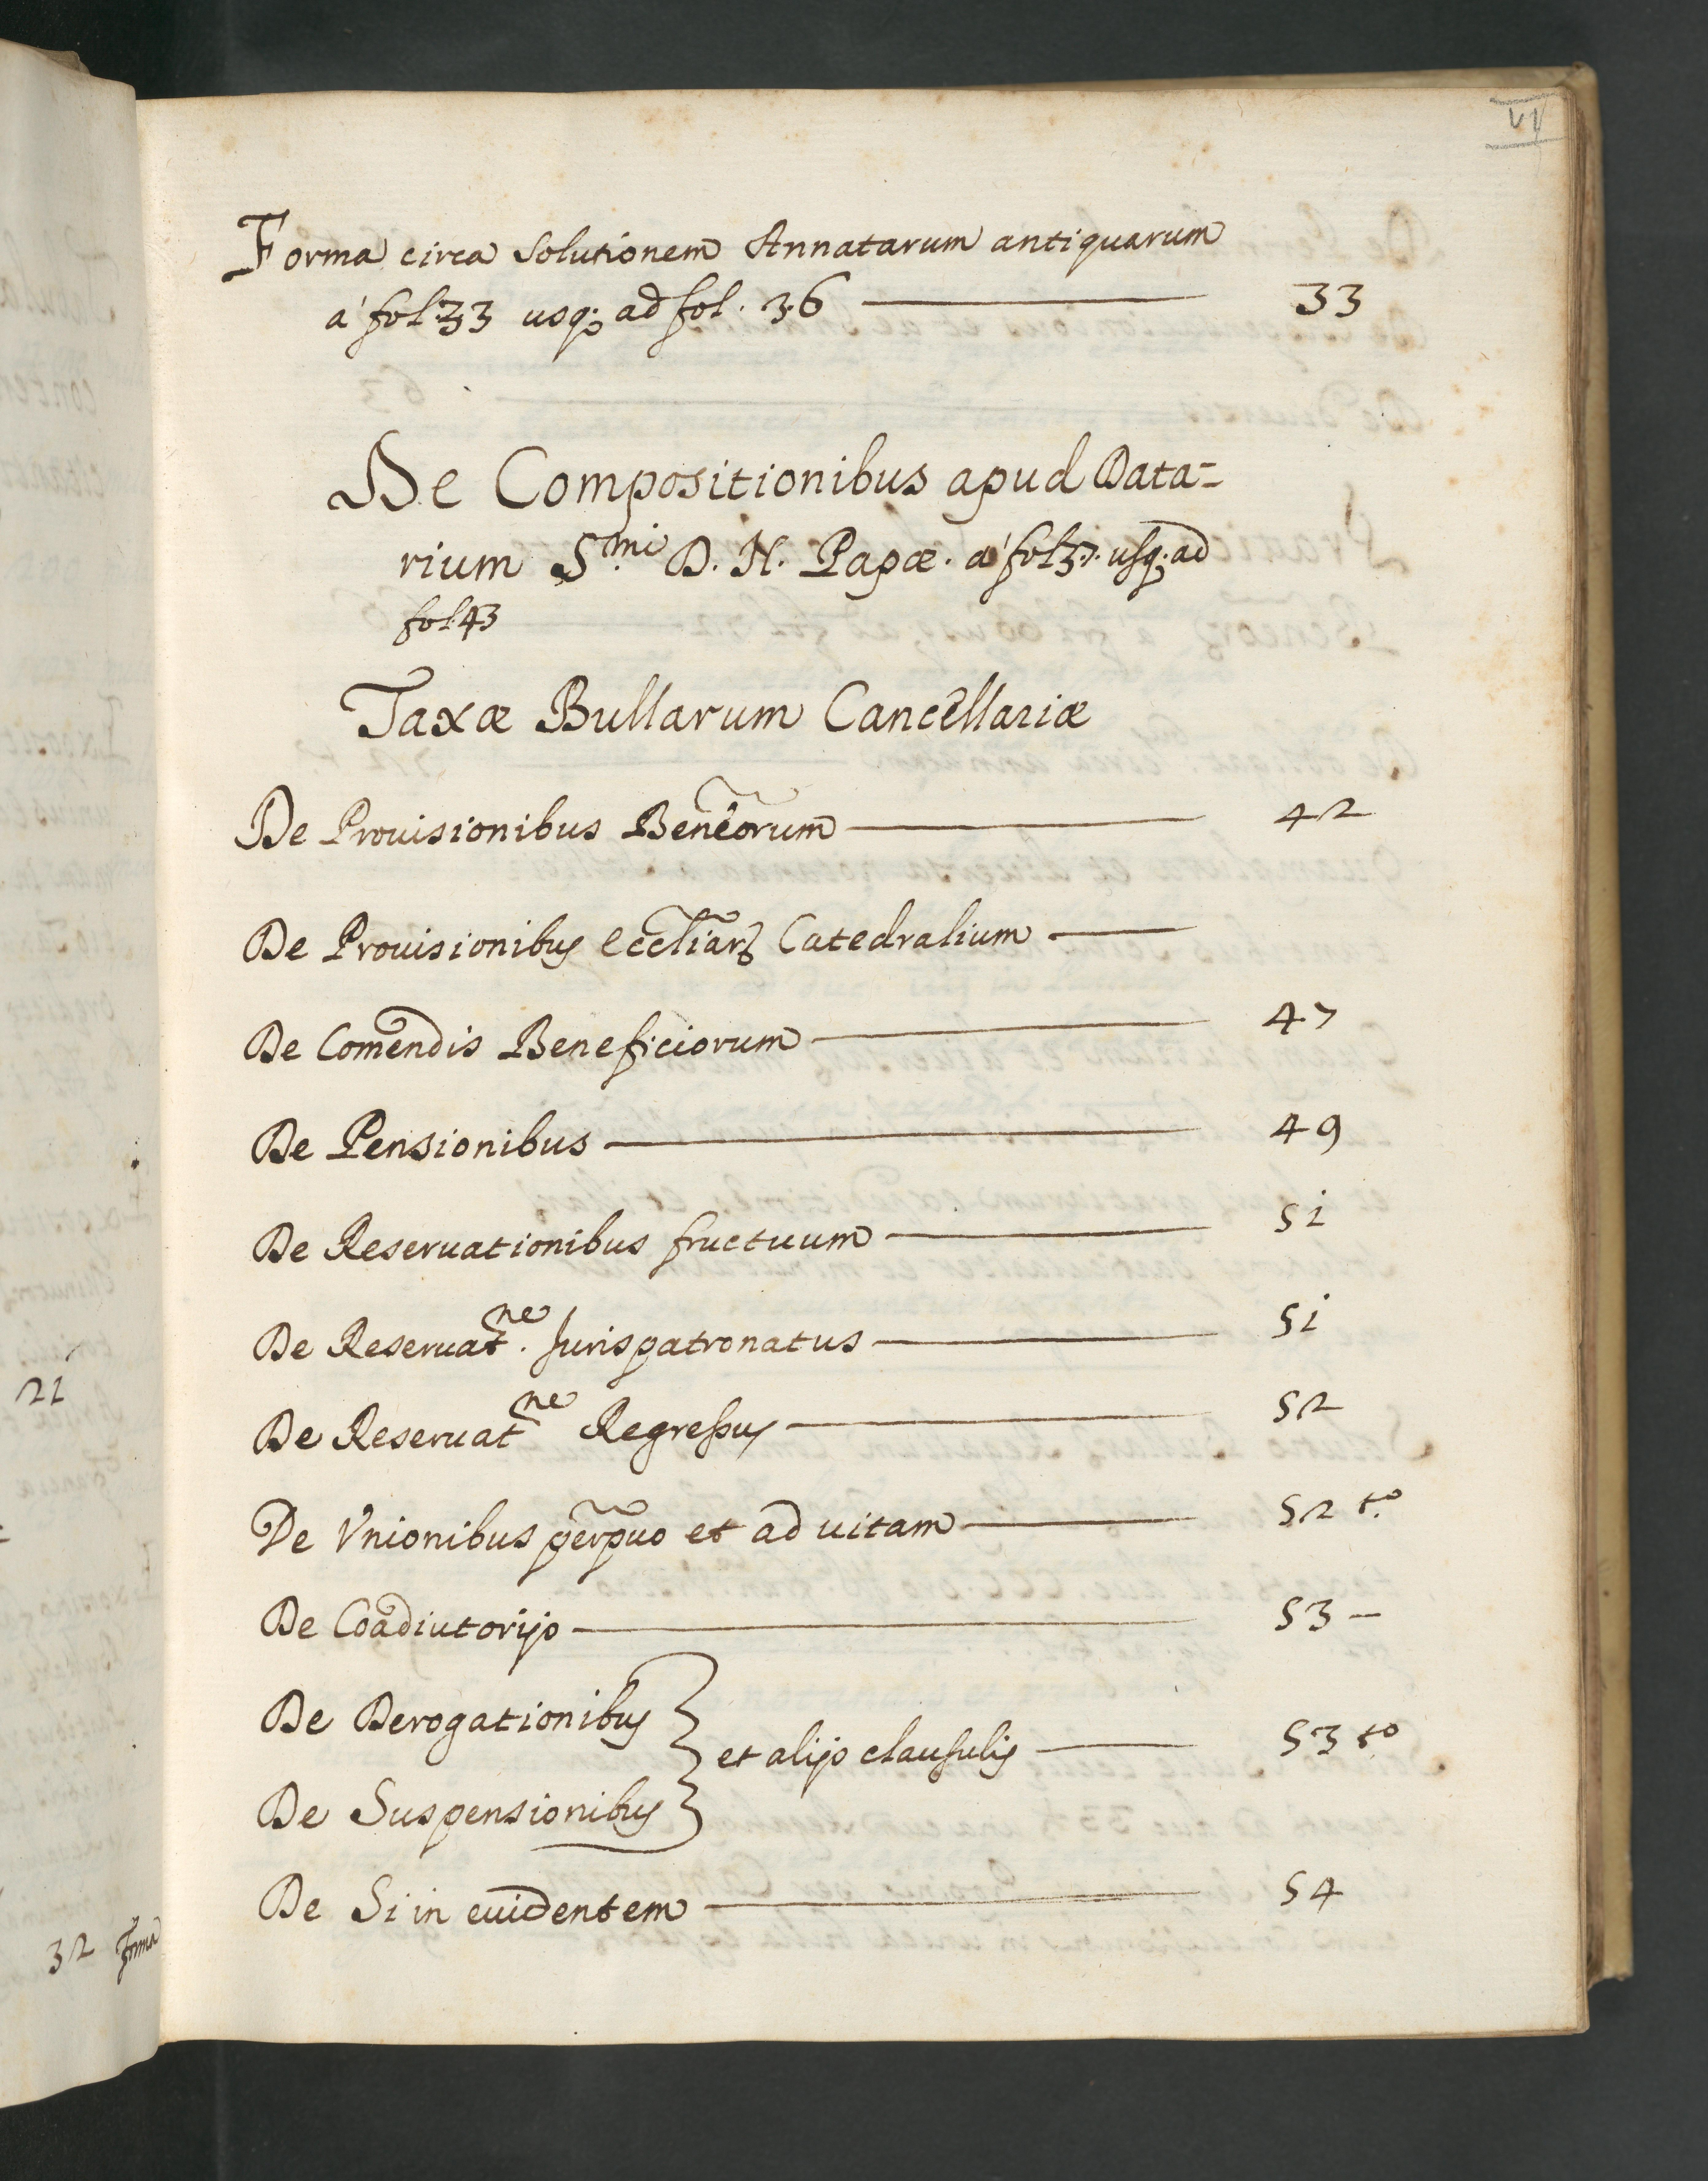 VI
Forma circa Solutionem Annatarum antiquarum
à fol: 33 usq; ad fol. 36 33
De Compositionibus apud Data-
rium S.mi D. N. Papæ. à fol 37. usq; ad
fol 43
Taxæ Bullarum Cancellariæ
De Prouisionibus Beneorum 42
De Prouisionibus eccliarꝝ Catedralium
De Comendis Beneficiorum 47
De Pensionibus 49
De Reseruationibus fructuum 51
De Reseruat.ne Jurispatronatus 51
De Reseruatne Regressus 52
De Vnionibus perpuo et ad uitam 52 t.o
De Coadiutorijs 53 -
De Derogationibus
et alijs clausulis 53 t.o
De Suspensionibus
De Si in euidentem 54
21
32 Forma